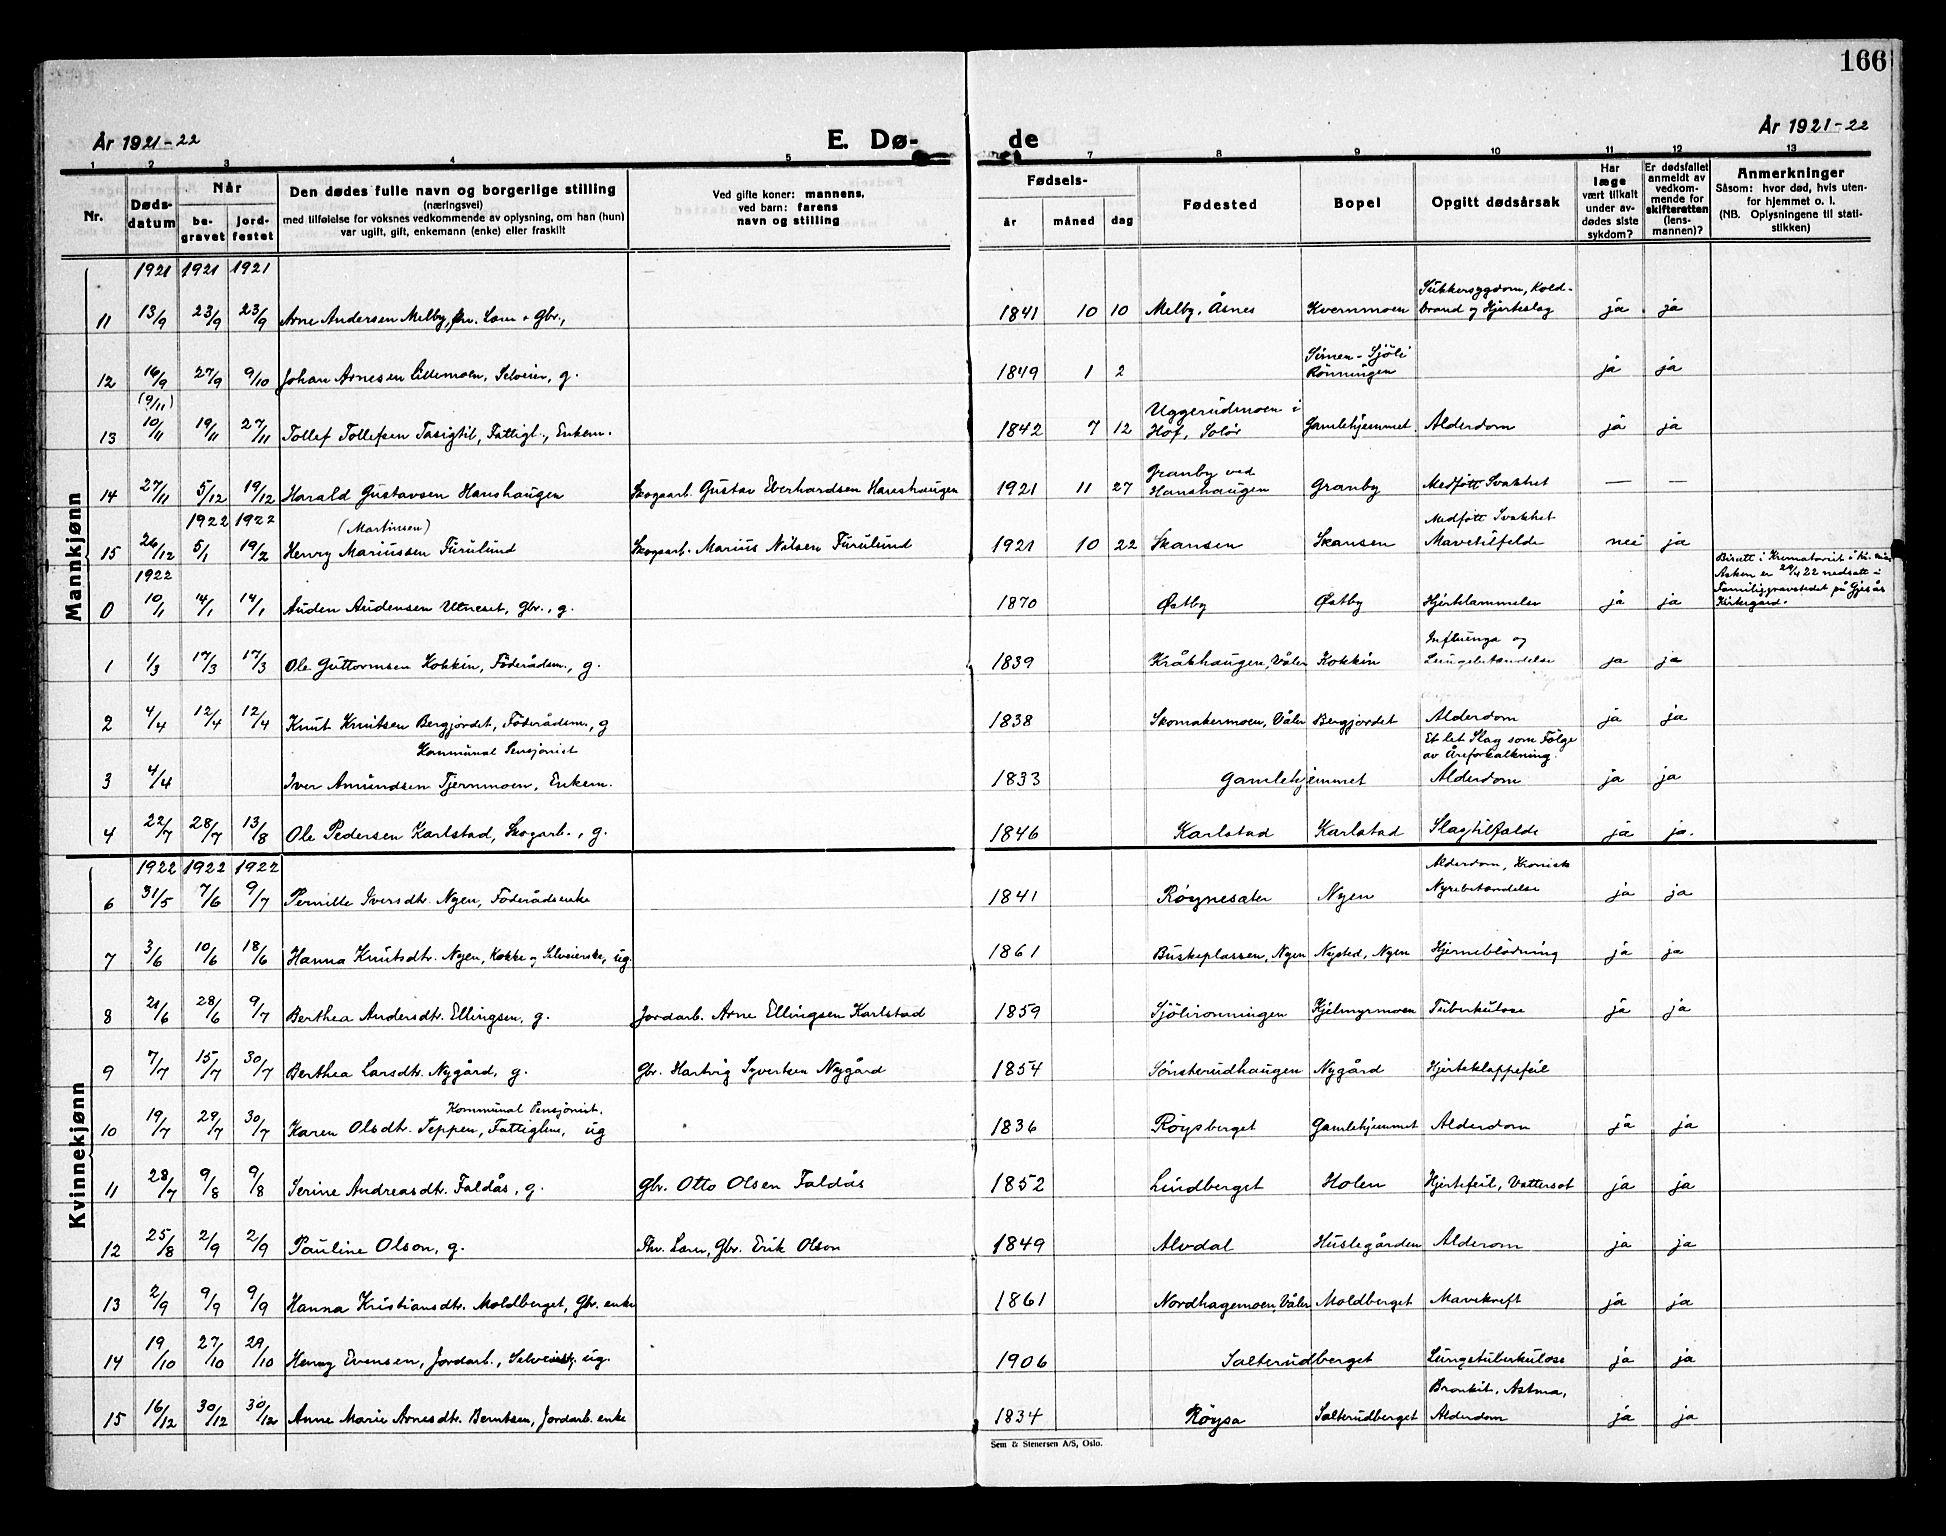 166
År 1921-22
E. Dø-
de
År 1921-22
1 2 3 4 5 7 8 9 10 11 12 13
Nr.
Døds-
datum
Når
be-
gravet
jord-
festet
Den dødes fulle navn og borgerlige stilling
(næringsvei)
med tilføielse for voksnes vedkommende av oplysning, om han (hun)
var ugift, gift, enkemann (enke) eller fraskilt
Ved gifte koner: mannens,
ved barn: farens
navn og stilling
Fødsels-
år måned dag
Fødested
Bopel
Opgitt dødsårsak
Har
læge
vært tilkalt
under av-
dødes siste
sykdom?
Er dødsfallet
anmeldt av
vedkom-
mende for
skifteretten
(lens-
mannen)?
Anmerkninger
Såsom: hvor død, hvis uten-
for hjemmet o. l.
(NB. Oplysningene til stati-
stikken)
Mannkjønn
1921 1921 1921
Sukkersygdom, Kold-
11 13/9 23/9 23/9 Arne Andersen Melby, Lærer + Gbr., 1841 10 10 Melby, Åsnes Kvernmoen brand og Hjerteslag ja ja
Simen-Sjöli
12 16/9 27/9 9/10 Johan Arnesen Lillemoen, Selveier, g. 1849 1 2 Rönningen ja ja
(9/11) Uggerudmoen i
13 10/11 19/11 27/11 Tollef Tollefsen Tasigtil, Fattigl., Enkem. 1842 7 12 Hof, Solör Gamlehjemmet Alderdom ja ja
Granby ved
14 27/11 5/12 19/12 Harald Gustavsen Hanshaugen Skogsarb. Gustav Everhardsen Hanshaugen 1921 11 27 Hanshaugen Granby Medfött Svakhet — —
1922 1922 (Martinsen) Medfött Svakhet
15 26/12 5/1 19/2 Henry Mariussen Furulund Skogsarb. Marius Nilsen Furulund 1921 10 22 Skansen Skansen Mavetilfelde nei ja
1922
0 10/1 14/1 14/1 Auden Audensen Utneset, Gbr., g. 1870 Østby Østby Hjertelammelse ja ja
Bisatt i Krematoriet i
Asken er 29/4 22 nedsatt i
Familiegravstedet på Gjesås
Kirkegård.
Influenza og
1 1/3 17/3 17/3 Ole Guttormsen Kokkin, Föderådsm., g. 1839 Kråkhaugen, Våler Kokkin Lungebetændelse ja ja
2 4/4 12/4 12/4 Knut Knutsen Bergjordet, Föderådsm., g 1838 Skomakermoen, Våler Bergjordet Alderdom ja ja
Kommunal Pensjonist Et let Slag som Fölge
av Åreforkalkning.
3 4/4 Iver Amundsen Tjernmoen, Enkem. 1833 Gamlehjemmet Alderdom ja ja
4 22/7 28/7 13/8 Ole Pedersen Karlstad, Skogarb., g. 1846 Karlstad Karlstad Slagtilfælde ja ja.
Kvinnekjønn
1922 1922 1922 Alderdom, Kronisk
6 31/5 7/6 9/7 Pernille Iversdtr. Nyen, Föderådsenke 1841 Röynesæter Nyen Nyrebetændelse ja ja
7 3/6 10/6 18/6 Hanna Knutsdtr. Nyen, Kokke og Selveierske, ug. 1861 Buskeplassen, Nyen Nysted, Nyen Hjerneblödning ja ja
8 21/6 28/6 9/7 Berthea Andersdtr. Ellingsen, g. Jordarb. Arne Ellingsen Karlstad 1859 Sjölirönningen Kjelmyrmoen Tuberkulose ja ja
9 7/7 15/7 30/7 Berthea Larsdtr. Nygård, g. Gbr. Hartvig Syversen Nygård 1854 Sönsterudhaugen Nygård Hjerteklappefeil
Kommunal Pensjonist.
10 19/7 29/7 30/7 Karen Olsdtr. Teppen, Fattiglem, ug 1836 Röysberget Gamlehjemmet Alderdom ja ja
11 28/7 9/8 9/8 Serine Andreasdtr. Faldås, g. Gbr. Otto Olsen Faldås 1852 Lindberget Holen Hjertefeil, Vattersot ja ja
12 25/8 2/9 2/9 Pauline Olson, g. Fhv. Lærer, Gbr. Erik Olson 1849 Alvdal Huslegården Alderom ja ja
13 2/9 9/9 9/9 Hanna Kristiansdtr. Moldberget, Gbr. enke 1861 Nordhagemoen, Våler Moldberget Mavekreft ja ja
14 19/10 27/10 29/10 Henny Evensen, Jordarb., Selveier, ug. 1906 Salterudberget Lungetuberkulose ja ja
Bronkit, Astma,
15 16/12 30/12 30/12 Anne Marie Arnesdtr. Berntsen, Jordarb. enke 1834 Röysa Salterudberget Alderdom ja ja
Sem & Stenersen A/S, Oslo.